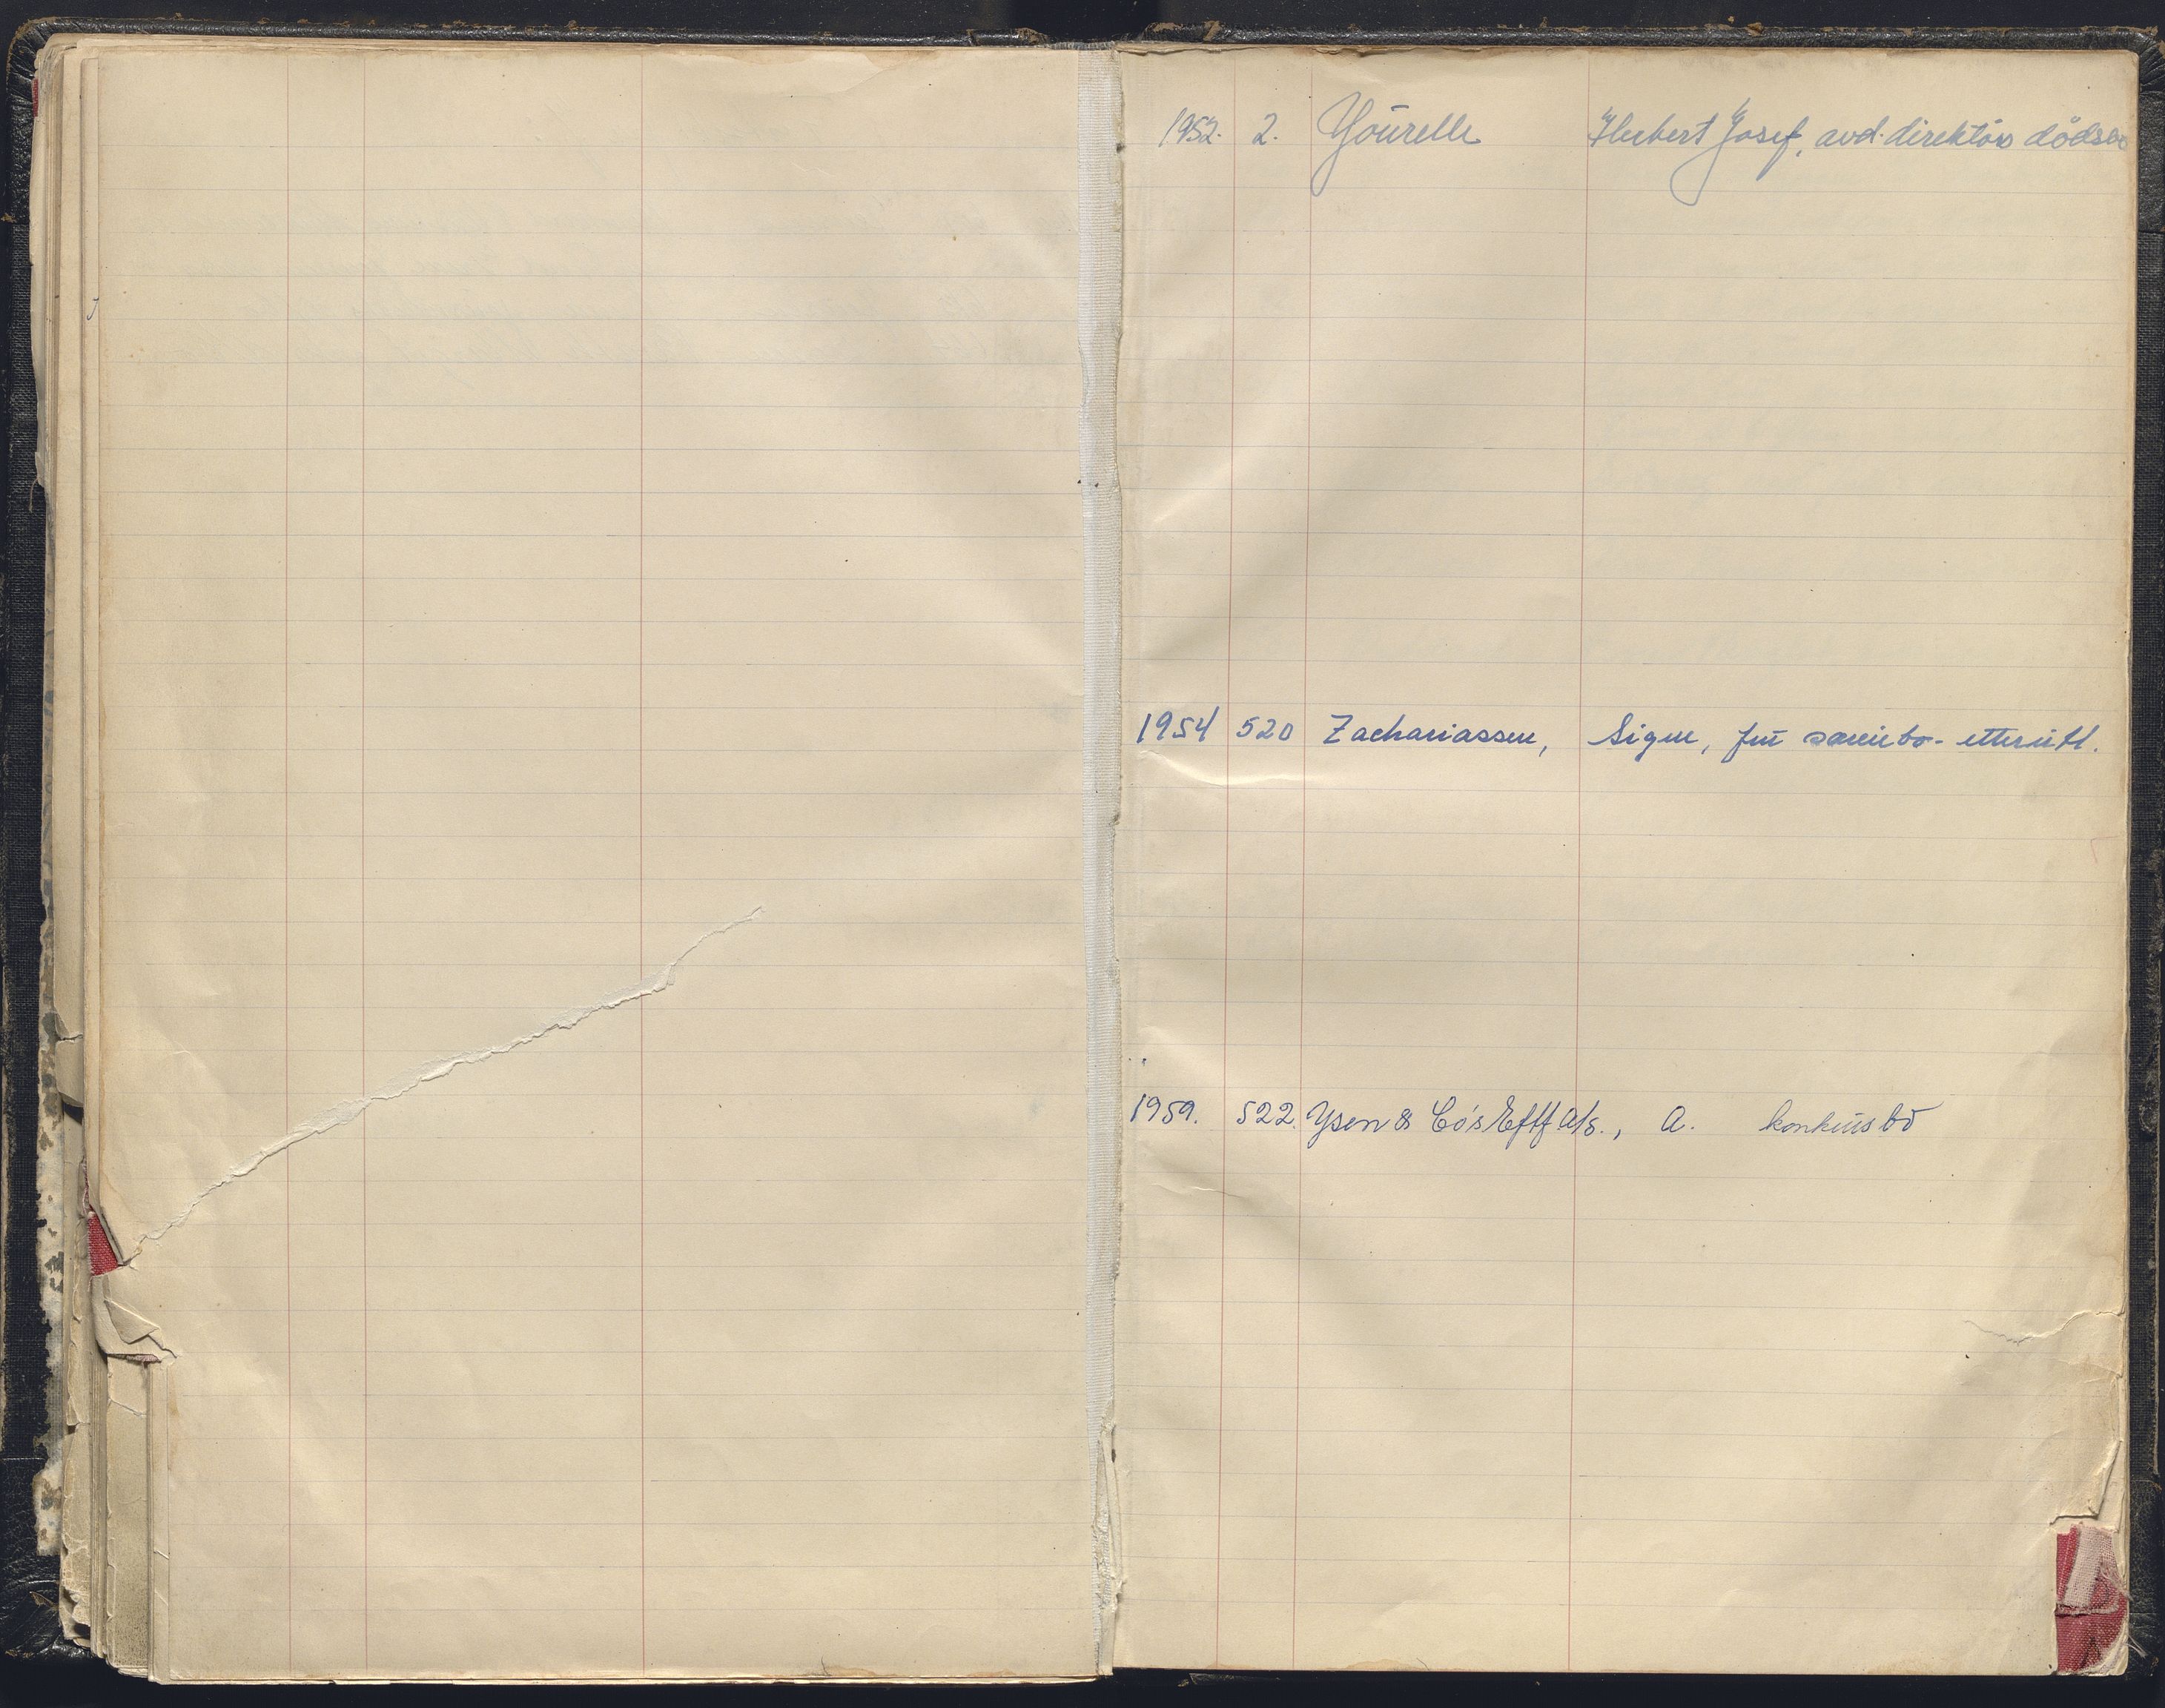 1952. 2. Yourelle Herbert Josef, avd. direktörs dödsbo
1954 520 Zachariassen, Signe, fru særeie bo - etterutl.
1959. 522. Ysen & Co's Eftf A/s., A. konkursbo